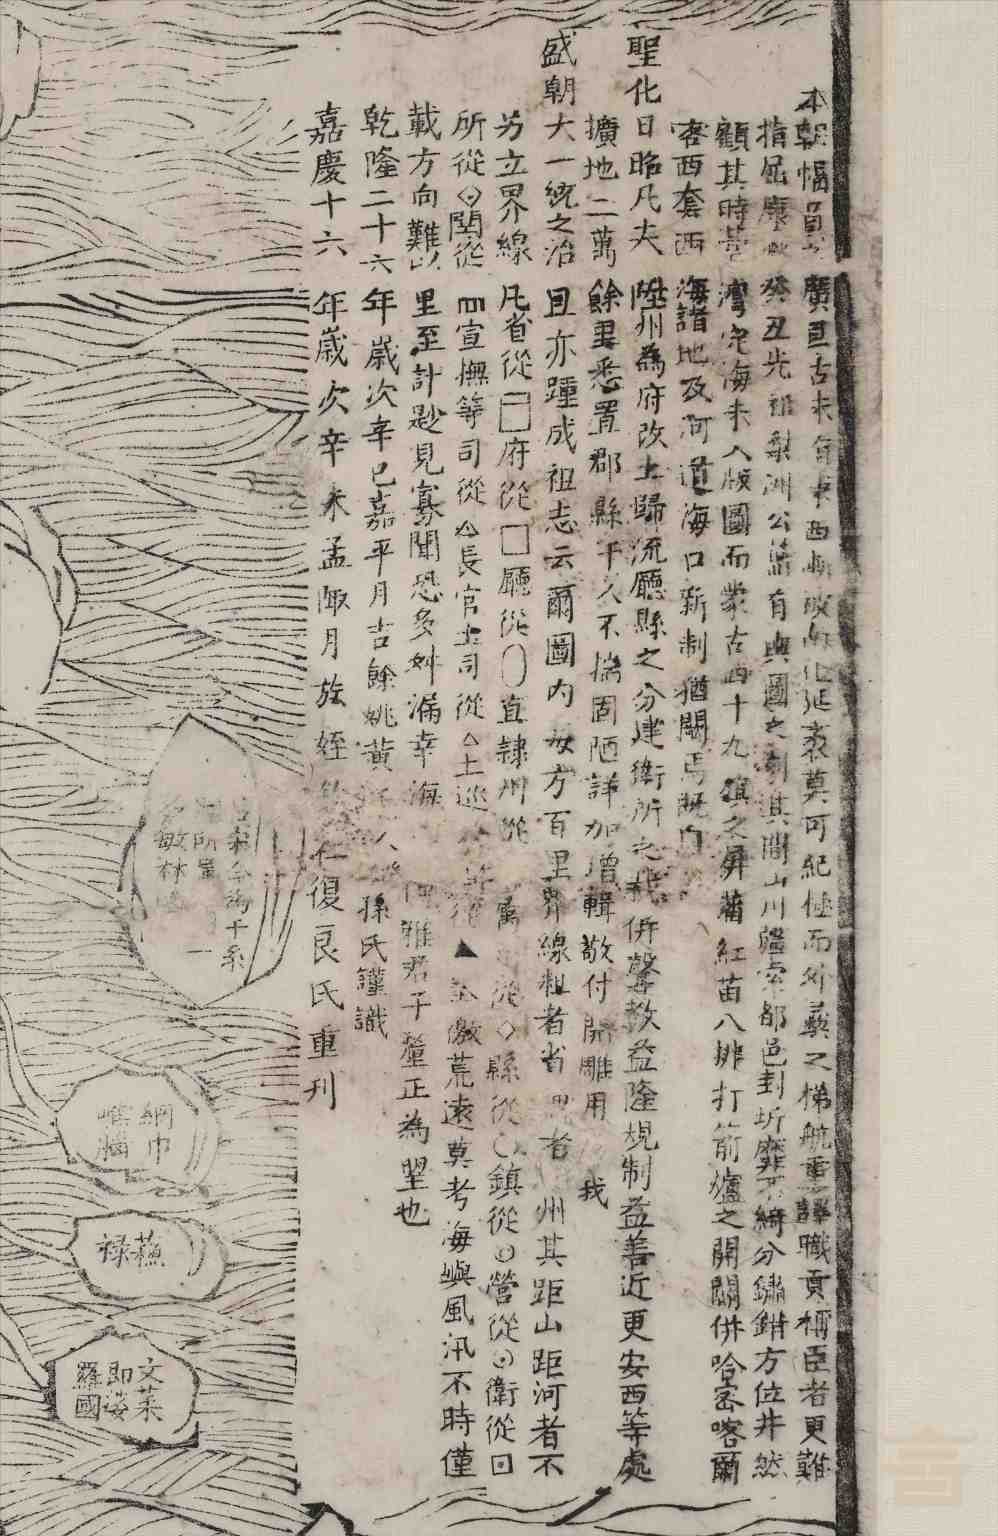 本朝幅員廣亘古未有東西朔化延袤莫可紀極而外彝之梯航重譯職貢稱臣者更難
指屈康癸丑先祖梨洲公舊有輿圖之刻其間山川疆索都邑封圻靡不綺分繡錯方位井然
顧其時臺灣定海未入版圖而蒙古四十九旗之屏藩紅苗八排打箭爐之開闢併哈密喀爾
客西套西海諸地及河道海口新制猶闕焉
聖化日昭凡夫陞州為府改土歸流廳縣之分建衛所之併聲教益隆規制益善近更安西等處
擴地二萬餘里悉置郡縣不揣固陋詳加增輯敬付開雕用我
盛朝大一統之治且亦踵成祖志云爾圖內每方百里界線粗者省者州其距山距河者不
另立界線凡省從府從□廳從直隸州從屬從◇縣從鎮從營從衛從
所從關從宣撫等司從長官土司從△土巡從▲徼荒遠莫考海嶼風汛不時僅
載方向難以里至計尠見寡聞恐多舛漏幸海雅君子釐正為望也
乾隆二十六年歲次辛巳嘉平月吉餘姚黃孫氏謹識
嘉慶十六年歲次辛未孟陬月族姪仁復良氏重刊
網巾
蘇祿
文萊即婆羅國